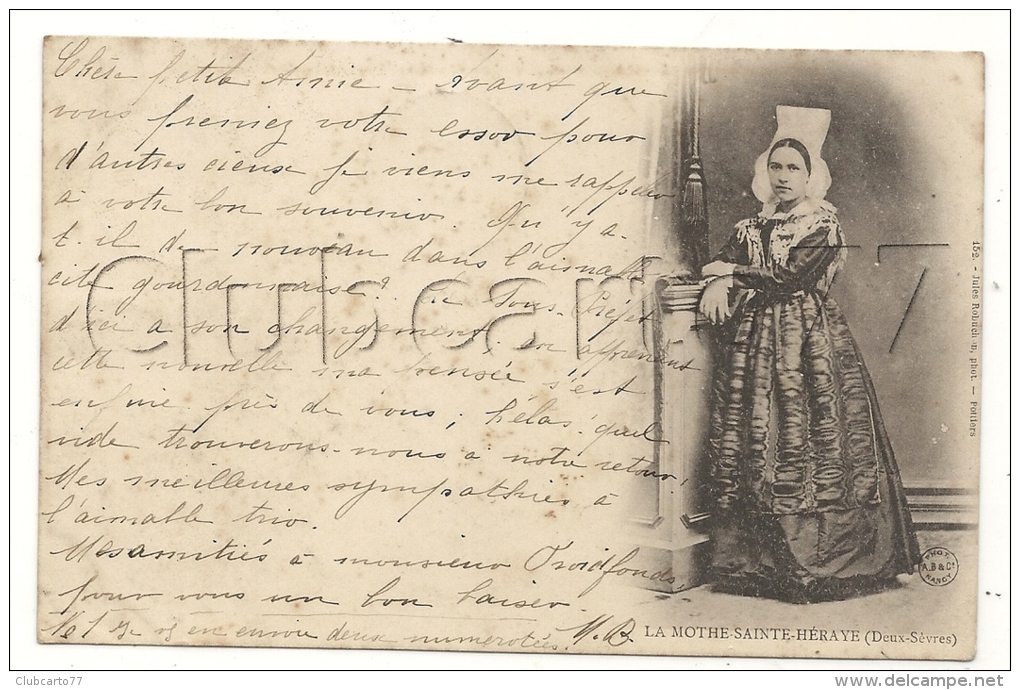 Chère petite Amie - Avant que
vous preniez votre essor pour
d'autres cieux je viens me rappeler
à votre bon souvenir. Qu'y a-
t-il de nouveau dans l'aimable
cité gourdonnaise? Le Sous-Préfet
d'ici a son changement. en apprenant
cette nouvelle ma pensée s'est
enfuie près de vous; hélas! quel
vide trouverons-nous à notre retour!
Mes meilleures sympathies à
l'aimable trio.
Mes amitiés à monsieur Froidfonds
pour vous un bon baiser.
en envoie deux numérotées. M. B.
LA MOTHE-SAINTE-HÉRAYE (Deux-Sèvres)
152. - Jules Robuchon, phot. - Poitiers
PHOT.
A. B & Cie
NANCY
Clubcarto77
Clubcarto77
www.delcampe.net